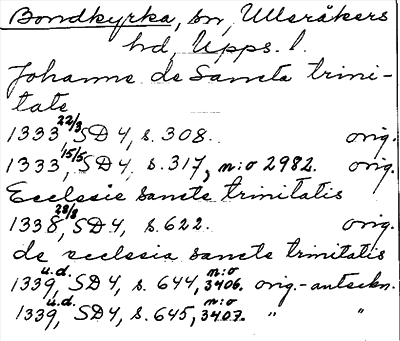 Bondkyrka, sn, Ulleråkers
hd, Upps. l.
Johanne de Sancta trini-
tate
1333 22/3 SD 4, s. 308. orig.
1333, 15/5 SD 4, s. 317, n:o 2982. orig.
Ecclesie sancte trinitatis
1338, 28/8 SD 4, s. 622. orig.
de ecclesia sancte trinitatis
1339, u.d. SD 4, s. 644, n:o 3406. orig.-anteckn.
1339, u.d. SD 4, s. 645, n:o 3407. " "